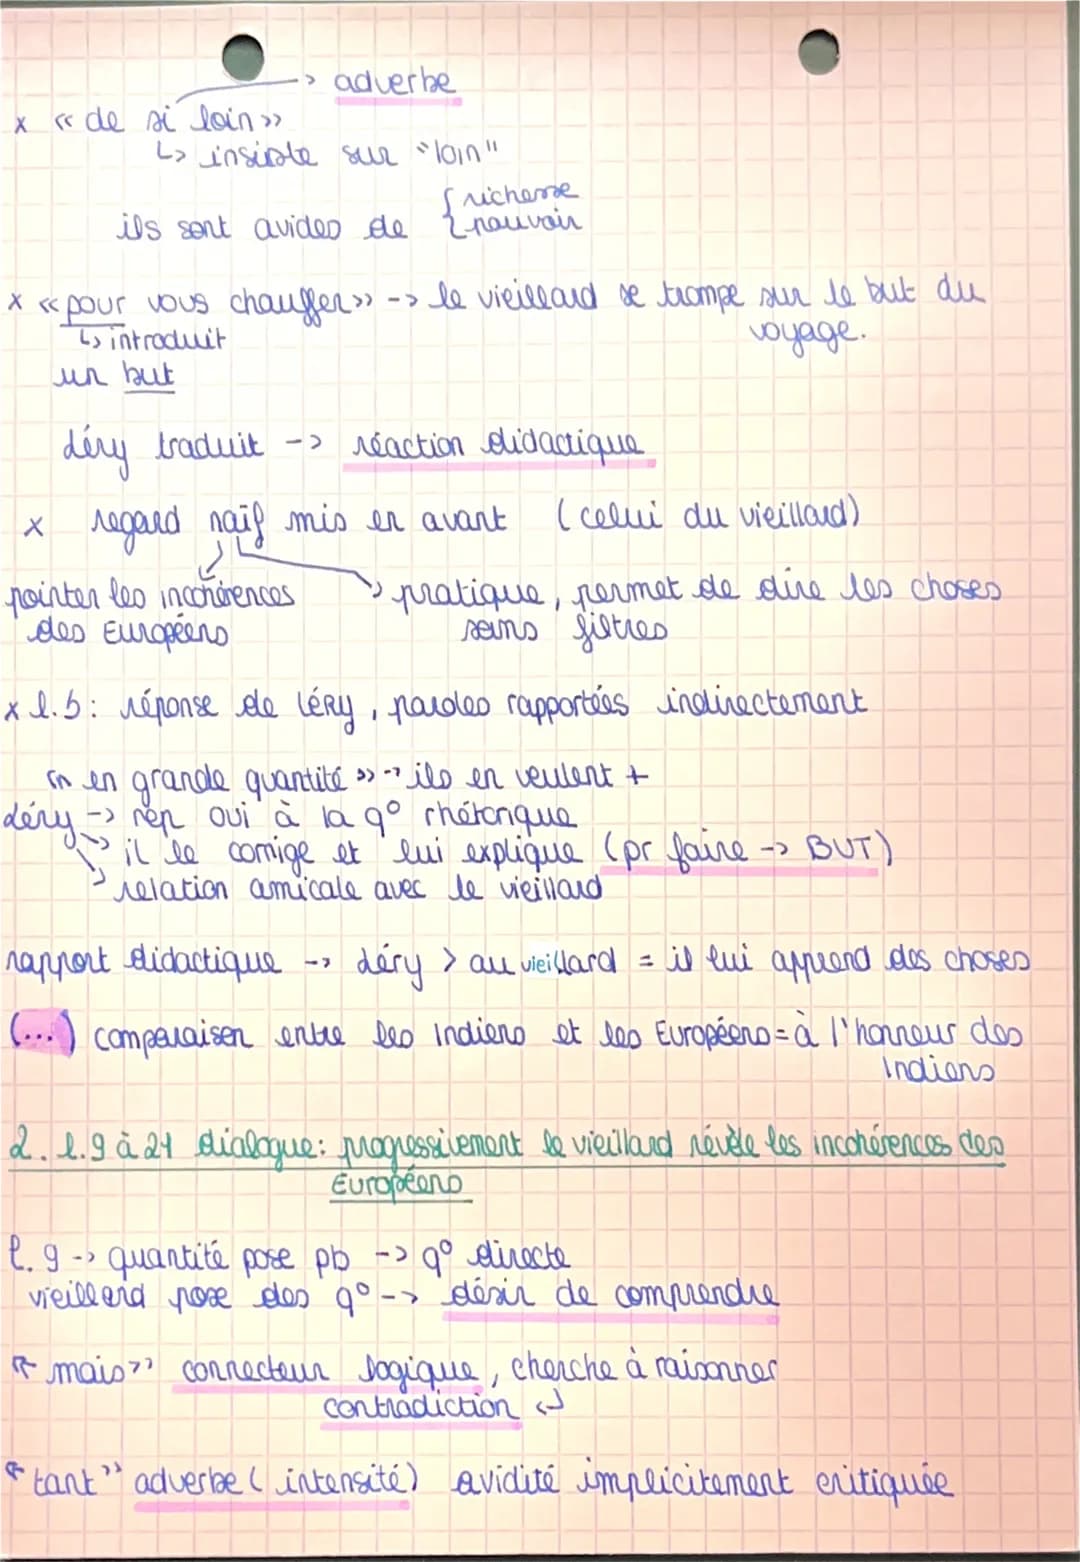 -> adverbe
x « de si loin »
↳ insiste sur "loin"
ils sont avides de { richesse
{ pouvoir
x « pour vous chauffer » -> le vieillard se trompe sur le but du
voyage.
↳ introduit
un but
Léry traduit -> réaction didactique
x regard naïf mis en avant (celui du vieillard)
pointer les incohérences -> pratique, permet de dire les choses
des Européens sans filtres
x l.5: réponse de Léry, paroles rapportées indirectement
« en grande quantité » -> ils en veulent +
Léry -> rép oui à la q° rhétorique
-> il le corrige et lui explique (pr faire -> BUT)
-> relation amicale avec le vieillard
rapport didactique -> Léry > au vieillard = il lui apprend des choses
(...) comparaison entre les Indiens et les Européens = à l'honneur des
Indiens
2. l.9 à 21 dialogue: progressivement le vieillard révèle les incohérences des
Européens
l.9 -> quantité pose pb -> q° directe
vieillard pose des q° -> désir de comprendre
« mais » connecteur logique, cherche à raisonner
contradiction ↵
« tant » adverbe (intensité) avidité implicitement critiquée